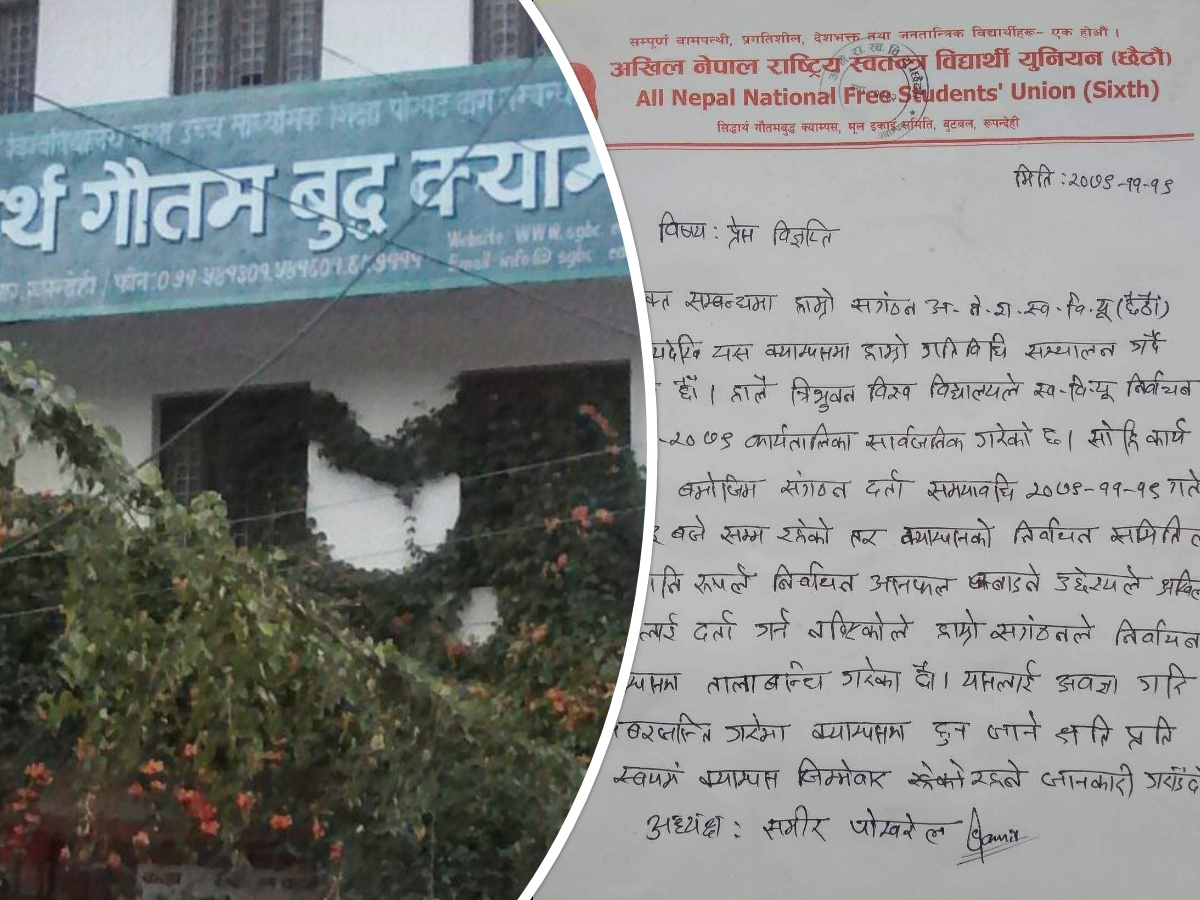 र्थ गौतम बुद्ध क्याम
Website: www.sgbc
फोन:
Email-info@sgbc
सम्पूर्ण वामपन्थी, प्रगतिशील, देशभक्त तथा जनतान्त्रिक विद्यार्थीहरू– एक होऔं ।
अखिल नेपाल राष्ट्रिय स्वतन्त्र विद्यार्थी युनियन (छैठौं)
All Nepal National Free Students' Union (Sixth)
सिद्धार्थ गौतमबुद्ध क्याम्पस, मूल इकाई समिति, बुटवल, रूपन्देही
मिति : २०७९-११-१९
विषय : प्रेस विज्ञप्ति
सम्बन्धमा हाम्रो सगंठन अ- ने-रा-स्व-वि-यू (छैठौं)
यस क्याम्पसमा हाम्रो गतिविधि सञ्चालन गर्दै
छौं । हालै त्रिभुवन विश्व विद्यालयले स्व-वि-यू निर्वाचन
-२०७९ कार्यतालिका सार्वजनिक गरेको छ । सो हि कार्य
बमोजिम संगठन दर्ता समयावधि २०७९-११-१९ गते
बजे सम्म रहेको तर क्याम्पसको निर्वाचन समिति
रूपले निर्वाचन आफ्नो उद्देश्यले अखिल
लाई दर्ता गर्न हाम्रो सगंठनले निर्वाचन
तालाबन्दि गरेका छौं । यसलाई अवज्ञा गरि
गरेमा क्याम्पसमा हुन जाने क्षति प्रति
स्वयमं क्याम्पस जिम्मेवार रहेको रहने जानकारी
अध्यक्ष : समीर पोखरेल